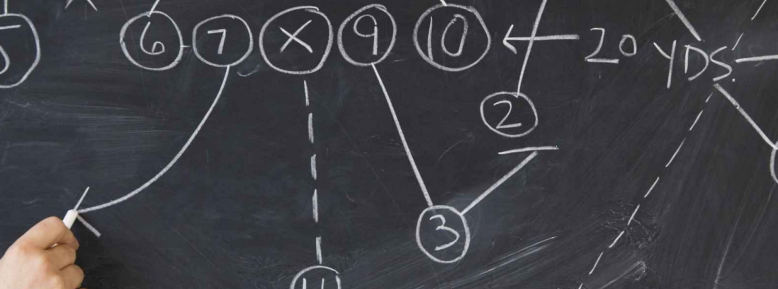 5 6 7 X 9 10 20 YDS.
2
3